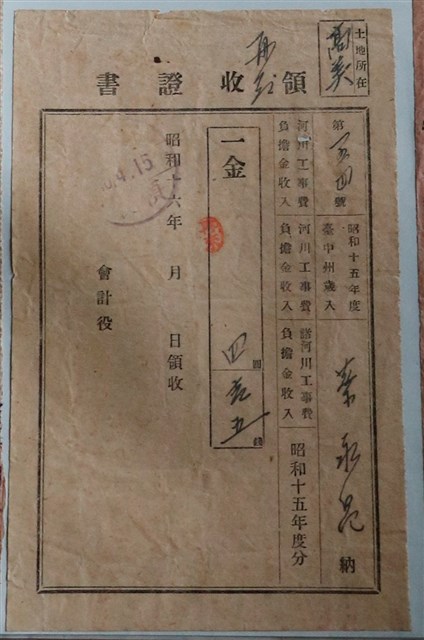 土地所在
領收證書
第一五四號
昭和十五年度
臺中州歲入
納
河川工事費
負擔金收入
河川工事費
負擔金收入
諸河川工事費
負擔金收入
昭和十五年度分
一金 四圓 五錢
昭和十六年 月 日領收
4.15
會計役